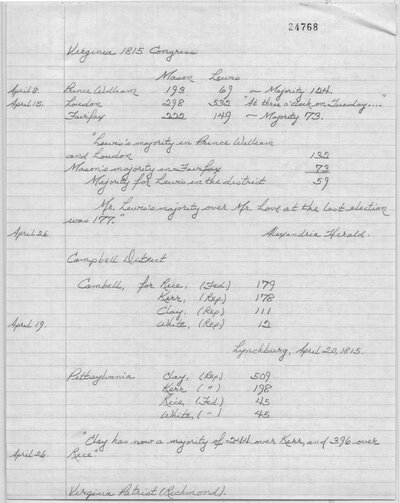 24768
Virginia 1815 Congress
Mason Lewis
April 8. Prince William 193 69 — Majority 124.
April 15. Loudon 298 532 "At three o'clock on Tuesday...."
Fairfax 222 149 — Majority 73.
"Lewis's majority in Prince William
and Loudon 132
Mason's majority in Fairfax 73
Majority for Lewis in the district 59
Mr. Lewis's majority over Mr. Love at the last election
was 177."
April 26. Alexandria Herald.
Campbell District
Cambell, for Rice, (Fed.) 179
Kerr, (Rep.) 178
Clay, (Rep.) 111
April 19. White, (Rep.) 12
Lynchburg, April 20, 1815.
Pittsylvania Clay, (Rep.) 509
Kerr (") 198
Rice, (Fed.) 45
White, (") 45
"Clay has now a majority of 244 over Kerr, and 396 over
April 26. Rice."
Virginia Patriot (Richmond).